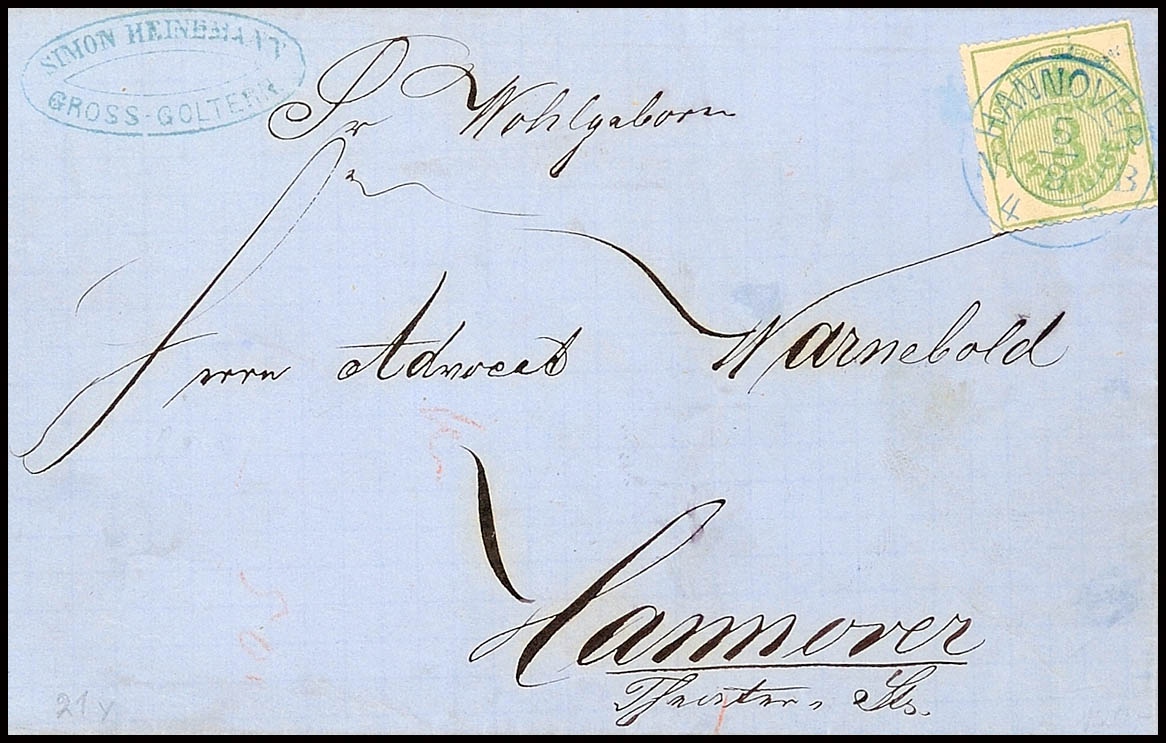 SIMON HEINEMANN
GROSS-GOLTERN
Sr Wohlgeborn
Herrn Advocat Warnebold
Hannover
Theater-Str.
HANNOVER
5
9
4
3
PFENNIGE
21 y